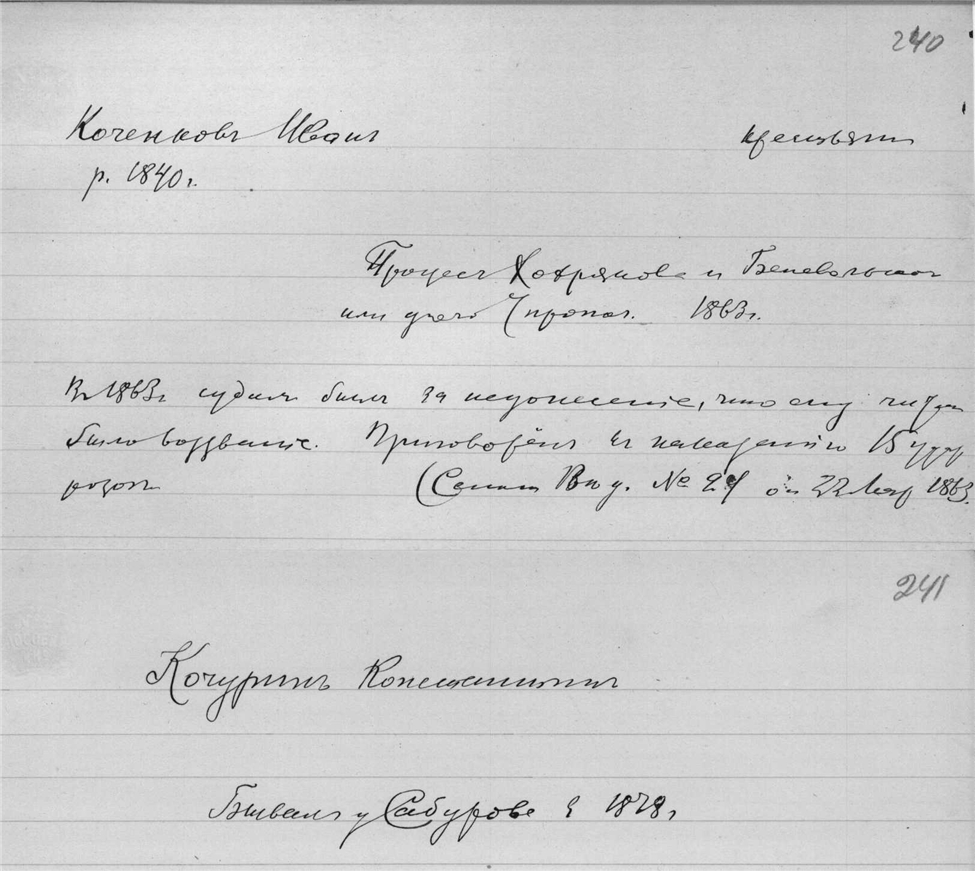 240
Коченковъ Иванъ крестьян
р. 1840 г.
Процесъ Хохрякова и Беневоленског
или дѣло 1863 г.
Въ 1863 г. судим былъ за недонесеніе, что ему читан
было воззваніе. Приговорёнъ къ наказанію 15 удар
розог
(Сенат Вѣд. № 29 от 22 1863.
241
Кочуринъ Константинъ
Бывалъ у Сабурова в 1878 г.